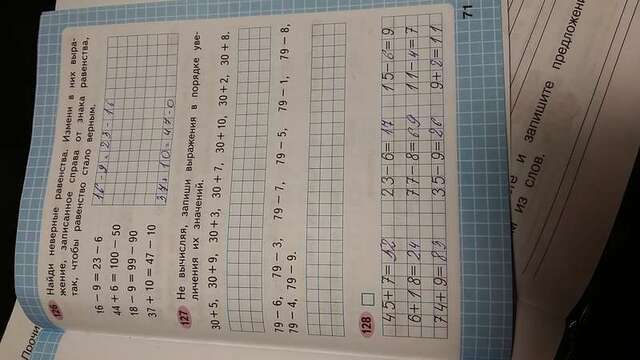 Прочи
126 Найди неверные равенства. Измени в них выра-
жение, записанное справа от знака равенства,
так, чтобы равенство стало верным.
16 − 9 = 23 − 6
16 - 9 = 23 - 16
44 + 6 = 100 − 50
18 − 9 = 99 − 90
37 + 10 = 47 − 10
37 + 10 = 47 - 0
127 Не вычисляя, запиши выражения в порядке уве-
личения их значений.
30 + 5, 30 + 9, 30 + 3, 30 + 7, 30 + 10, 30 + 2, 30 + 8.
79 − 6, 79 − 3, 79 − 7, 79 − 5, 79 − 1, 79 − 8,
79 − 4, 79 − 9.
128
45+7=52 23-6=17 15-6=9
6+18=24 77-8=69 11-4=7
74+9=83 35-9=26 9+2=11
71
и запишите предложени
из слов.